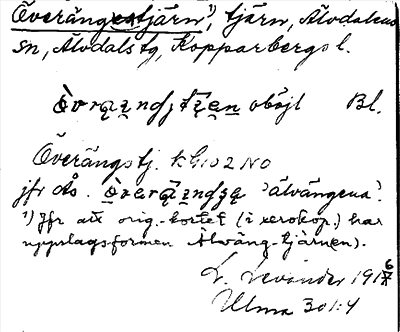 Överängstjärn¹), tjärn, Älvdalens
sn, Älvdals tg, Kopparbergs l.
oböjl Bl.
Överängstj. KG102 NO
jfr ds. 'älvängena'.
¹) Jfr att orig.-kortet (i xerokop.) har
uppslagsformen Älväng-tjärnen).
L. Levander 191
Ulma 301:4